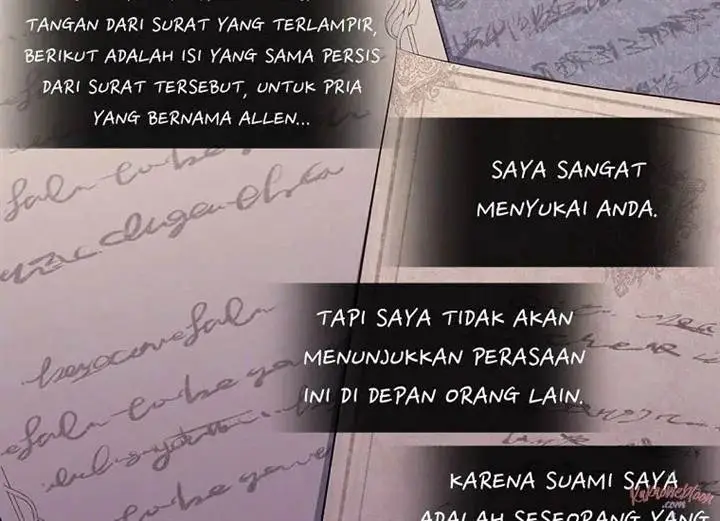 TANGAN DARI SURAT YANG TERLAMPIR,
BERIKUT ADALAH ISI YANG SAMA PERSIS
DARI SURAT TERSEBUT, UNTUK PRIA
YANG BERNAMA ALLEN...
SAYA SANGAT
MENYUKAI ANDA.
TAPI SAYA TIDAK AKAN
MENUNJUKKAN PERASAAN
INI DI DEPAN ORANG LAIN.
KARENA SUAMI SAYA
ADALAH SESEORANG YANG
.com